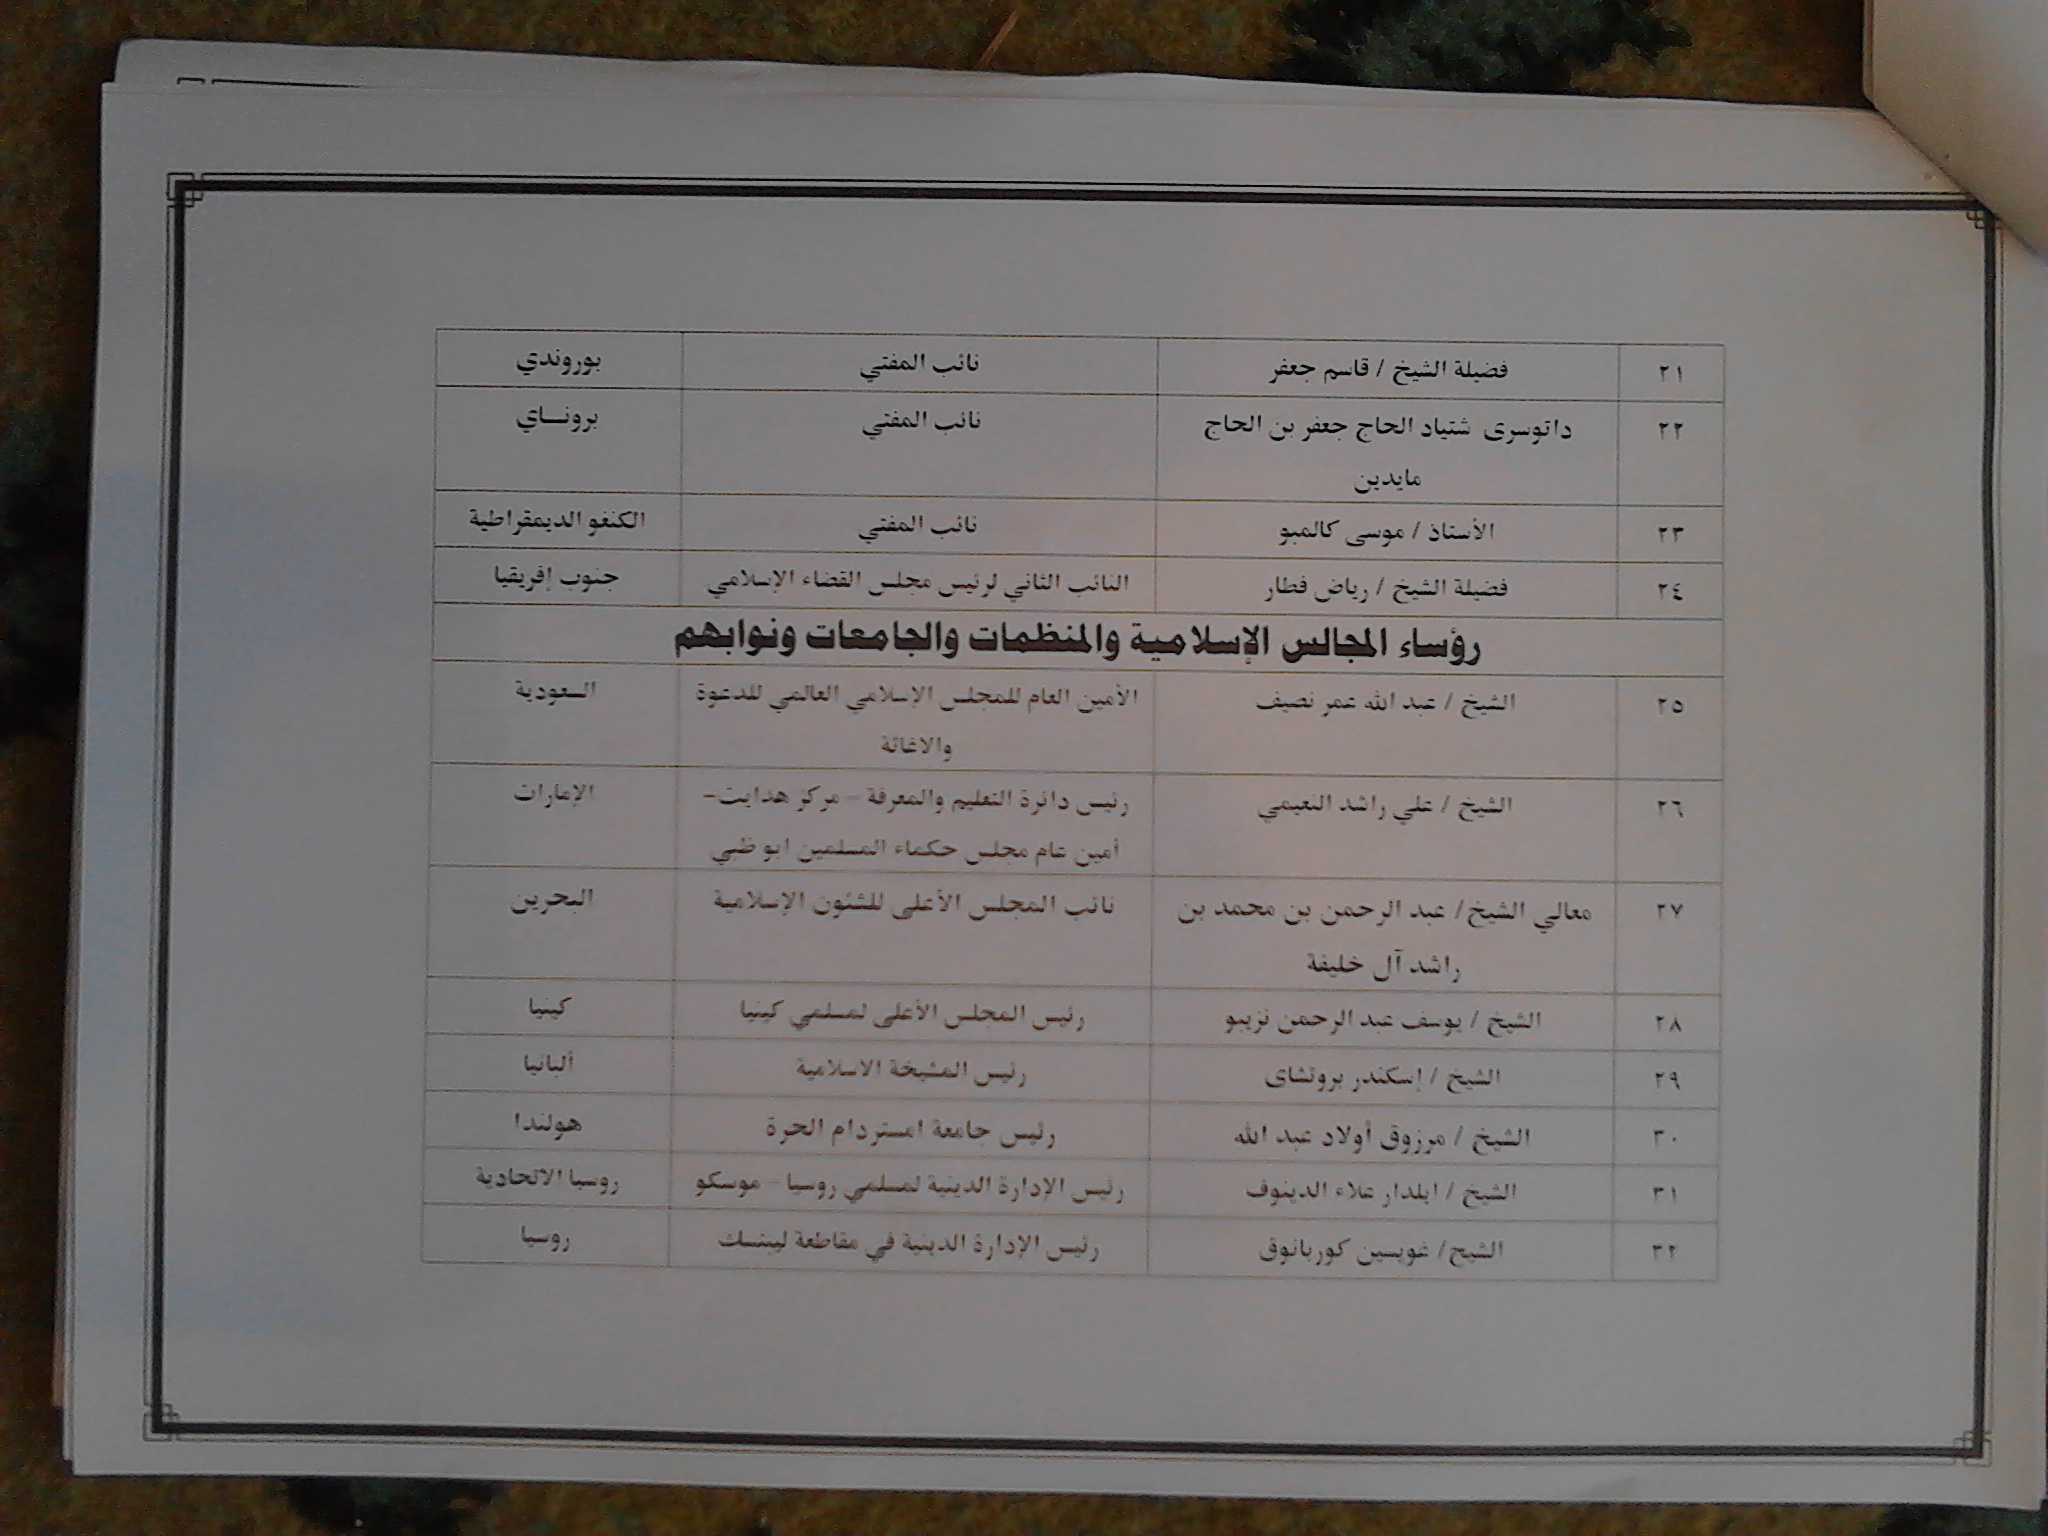 ٢١ فضيلة الشيخ / قاسم جعفر نائب المفتي بوروندي
٢٢ داتوسرى شتياد الحاج جعفر بن الحاج نائب المفتي برونـــاي
مايدين
٢٣ الأستاذ / موسى كالمبو نائب المفتي الكنغو الديمقراطية
٢٤ فضيلة الشيخ / رياض فطار النائب الثاني لرئيس مجلس القضاء الإسلامي جنوب إفريقيا
رؤساء المجالس الإسلامية والمنظمات والجامعات ونوابهم
٢٥ الشيخ / عبد الله عمر نصيف الأمين العام للمجلس الإسلامي العالمي للدعوة السعودية
والاغاثة
٢٦ الشيخ / علي راشد النعيمي رئيس دائرة التعليم والمعرفة – مركز هدايت– الإمارات
أمين عام مجلس حكماء المسلمين ابو ظبي
٢٧ معالي الشيخ/ عبد الرحمن بن محمد بن نائب المجلس الأعلى للشئون الإسلامية البحرين
راشد آل خليفة
٢٨ الشيخ / يوسف عبد الرحمن نزيبو رئيس المجلس الأعلى لمسلمي كينيا كينيا
٢٩ الشيخ / إسكندر بروتشاى رئيس المشيخة الاسلامية ألبانيا
٣٠ الشيخ / مرزوق أولاد عبد الله رئيس جامعة امستردام الحرة هولندا
٣١ الشيخ / ايلدار علاء الدينوف رئيس الإدارة الدينية لمسلمي روسيا – موسكو روسيا الاتحادية
٣٢ الشيخ/ غويسين كوربانوق رئيس الإدارة الدينية في مقاطعة ليبتسك روسيا